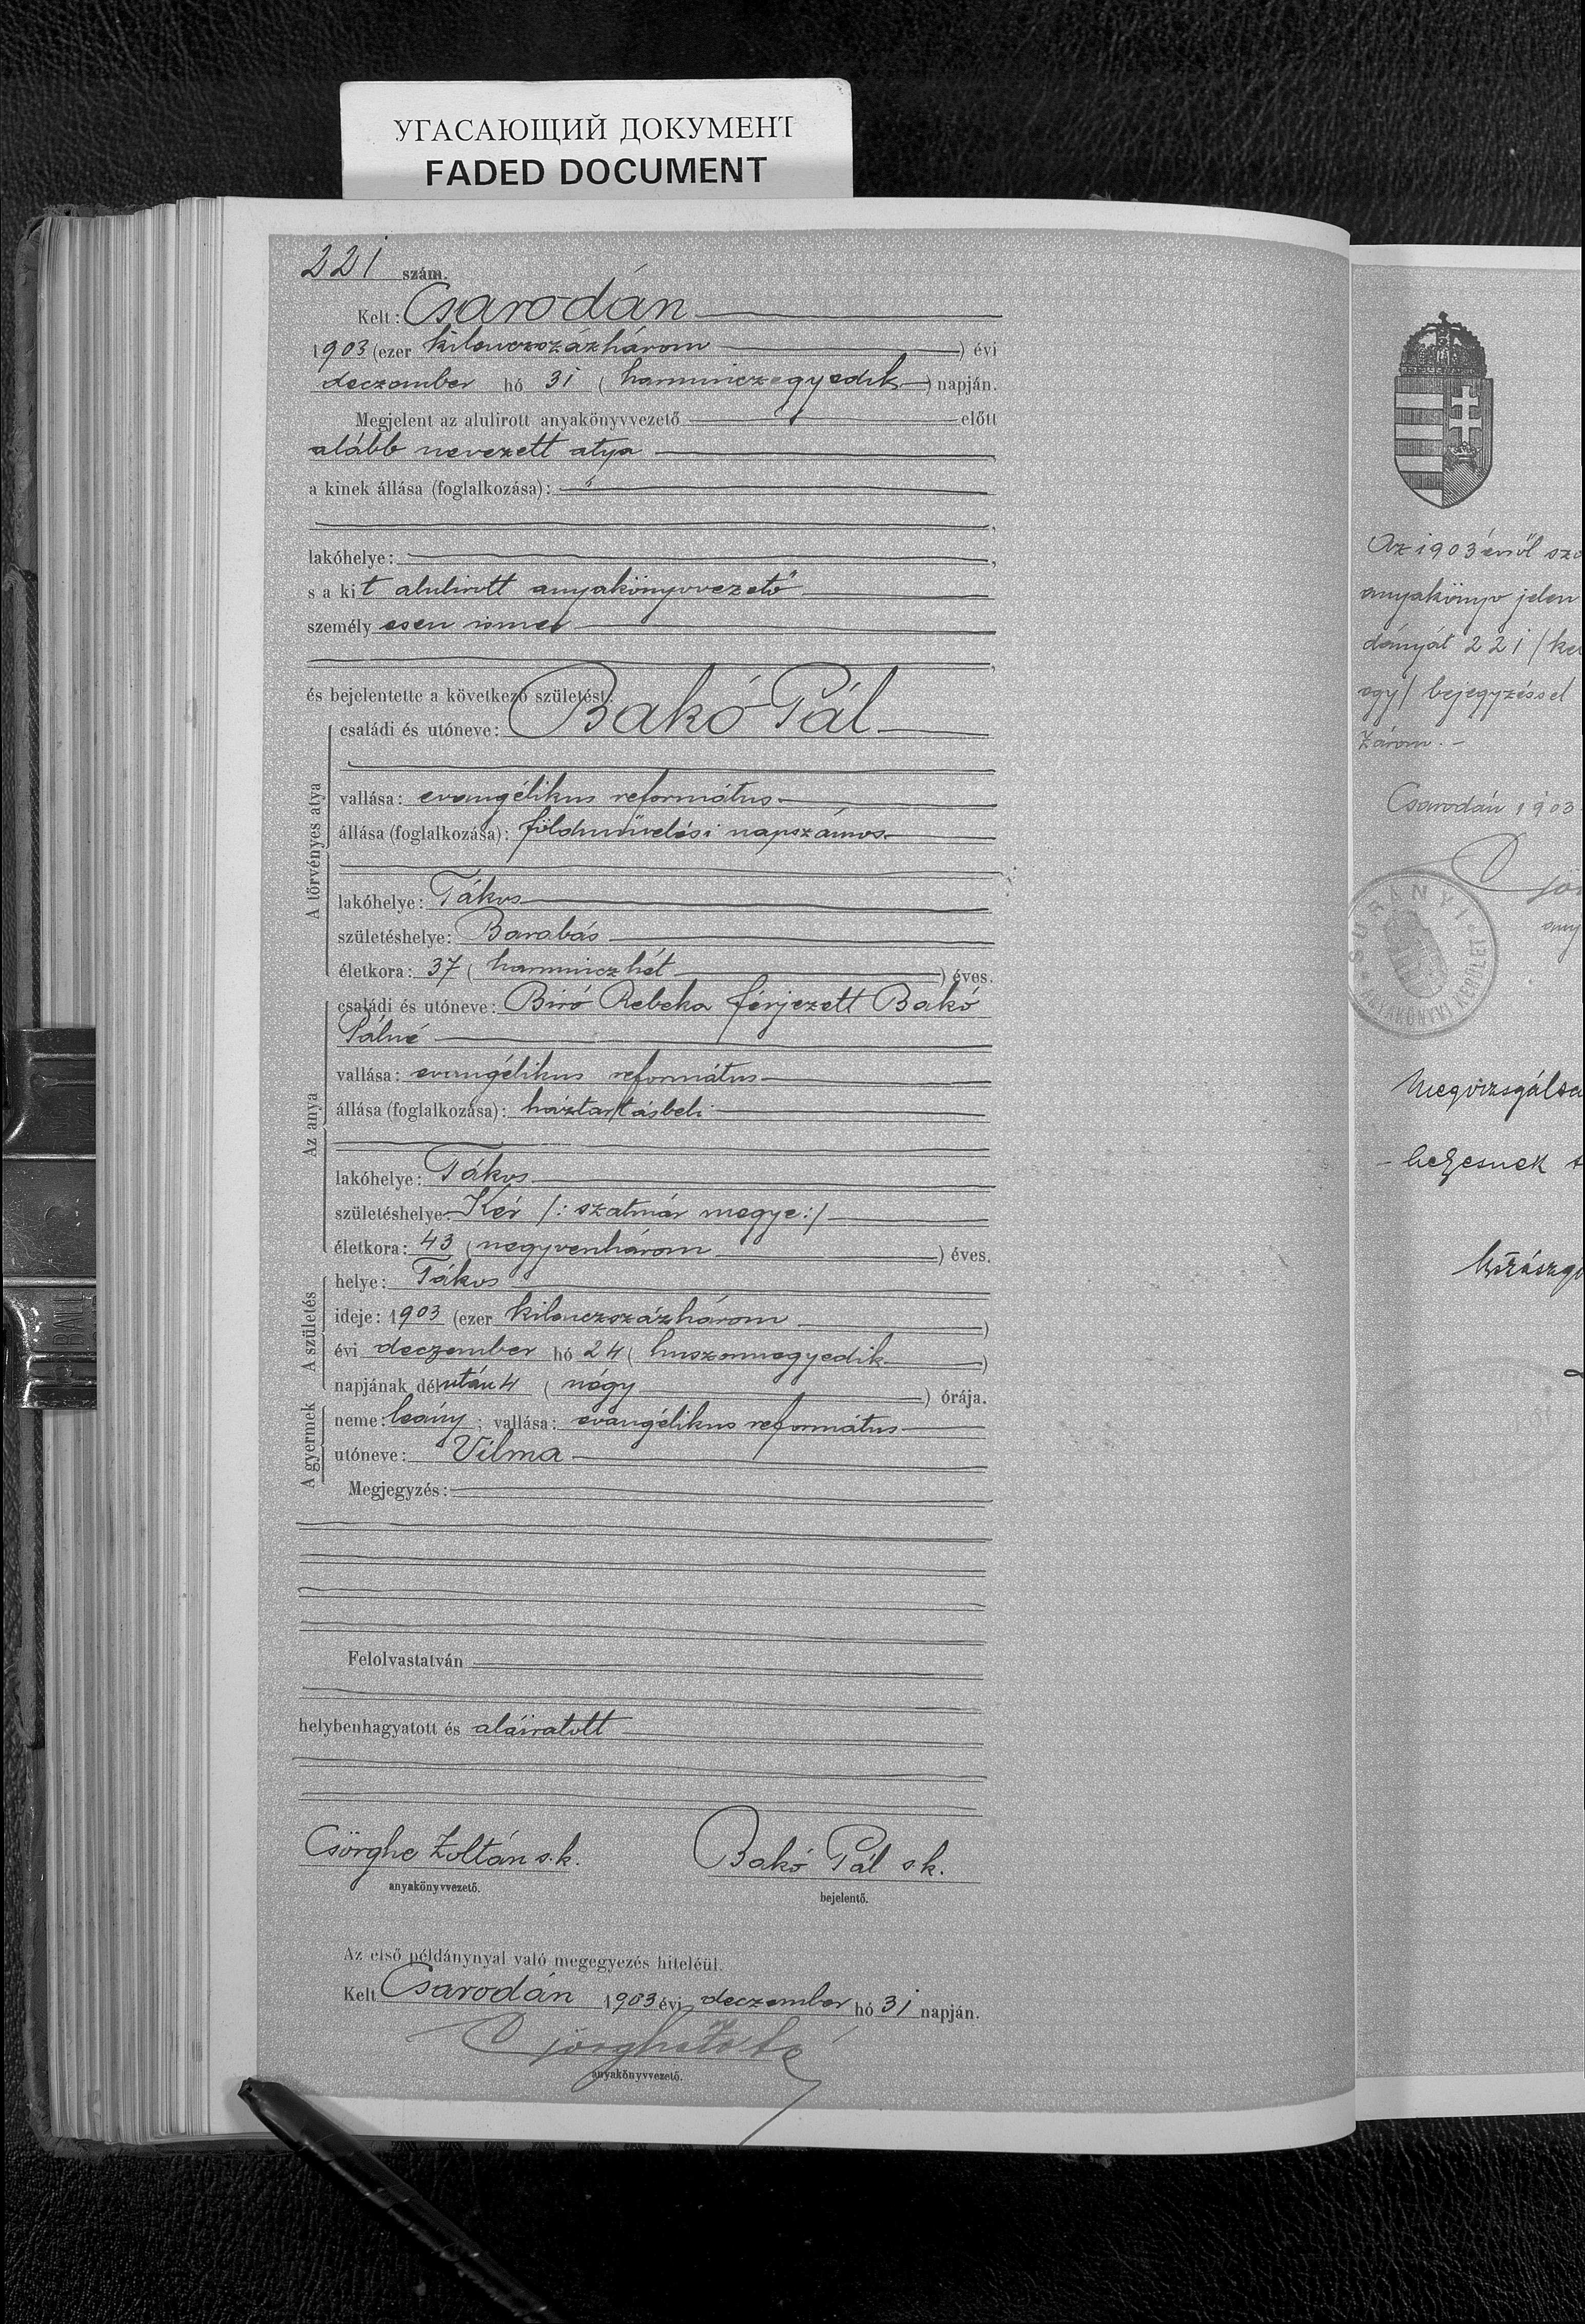 УГАСАЮЩИЙ ДОКУМЕНТ
FADED DOCUMENT
221 szám.
Kelt: Csarodán
1903 (ezer kilenczszázhárom) évi
deczember hó 31 (harminczegyedik) napján.
Megjelent az alulirott anyakönyvvezető előtt
alább nevezett atya
a kinek állása (foglalkozása):
lakóhelye:
s a kit alulirott anyakönyvvezető
személyesen ismer
és bejelentette a következő születést:
A törvényes atya
családi és utóneve: Bakó Pál
vallása: evangélikus református
állása (foglalkozása): földmüvelési napszámos
lakóhelye: Tákos
születéshelye: Barabás
életkora: 37 (harminczhét) éves.
Az anya
családi és utóneve: Biró Rebeka férjezett Bakó
Pálné
vallása: evangélikus református
állása (foglalkozása): háztartásbeli
lakóhelye: Tákos
születéshelye: Kér /: szatmár megye :/
életkora: 43 (negyvenhárom) éves.
A születés
helye: Tákos
ideje: 1903 (ezer kilenczszázhárom)
évi deczember hó 24 (huszonnegyedik)
napjának délután 4 (négy) órája.
A gyermek
neme: leány; vallása: evangélikus református
utóneve: Vilma
Megjegyzés:
Felolvastatván
helybenhagyatott és aláiratott
Csörghe Zoltán s.k. Bakó Pál s.k.
anyakönyvvezető. bejelentő.
Az első példánynyal való megegyezés hiteléül.
Kelt Csarodán 1903 évi deczember hó 31 napján.
anyakönyvvezető.
Az 1903 évről
anyakönyv jelen
dányát 221 /
egy/ bejegyzéssel
zárom.-
Csarodán 1903
SURÁNYI
ANYAKÖNYVI KERÜLET
helyesnek